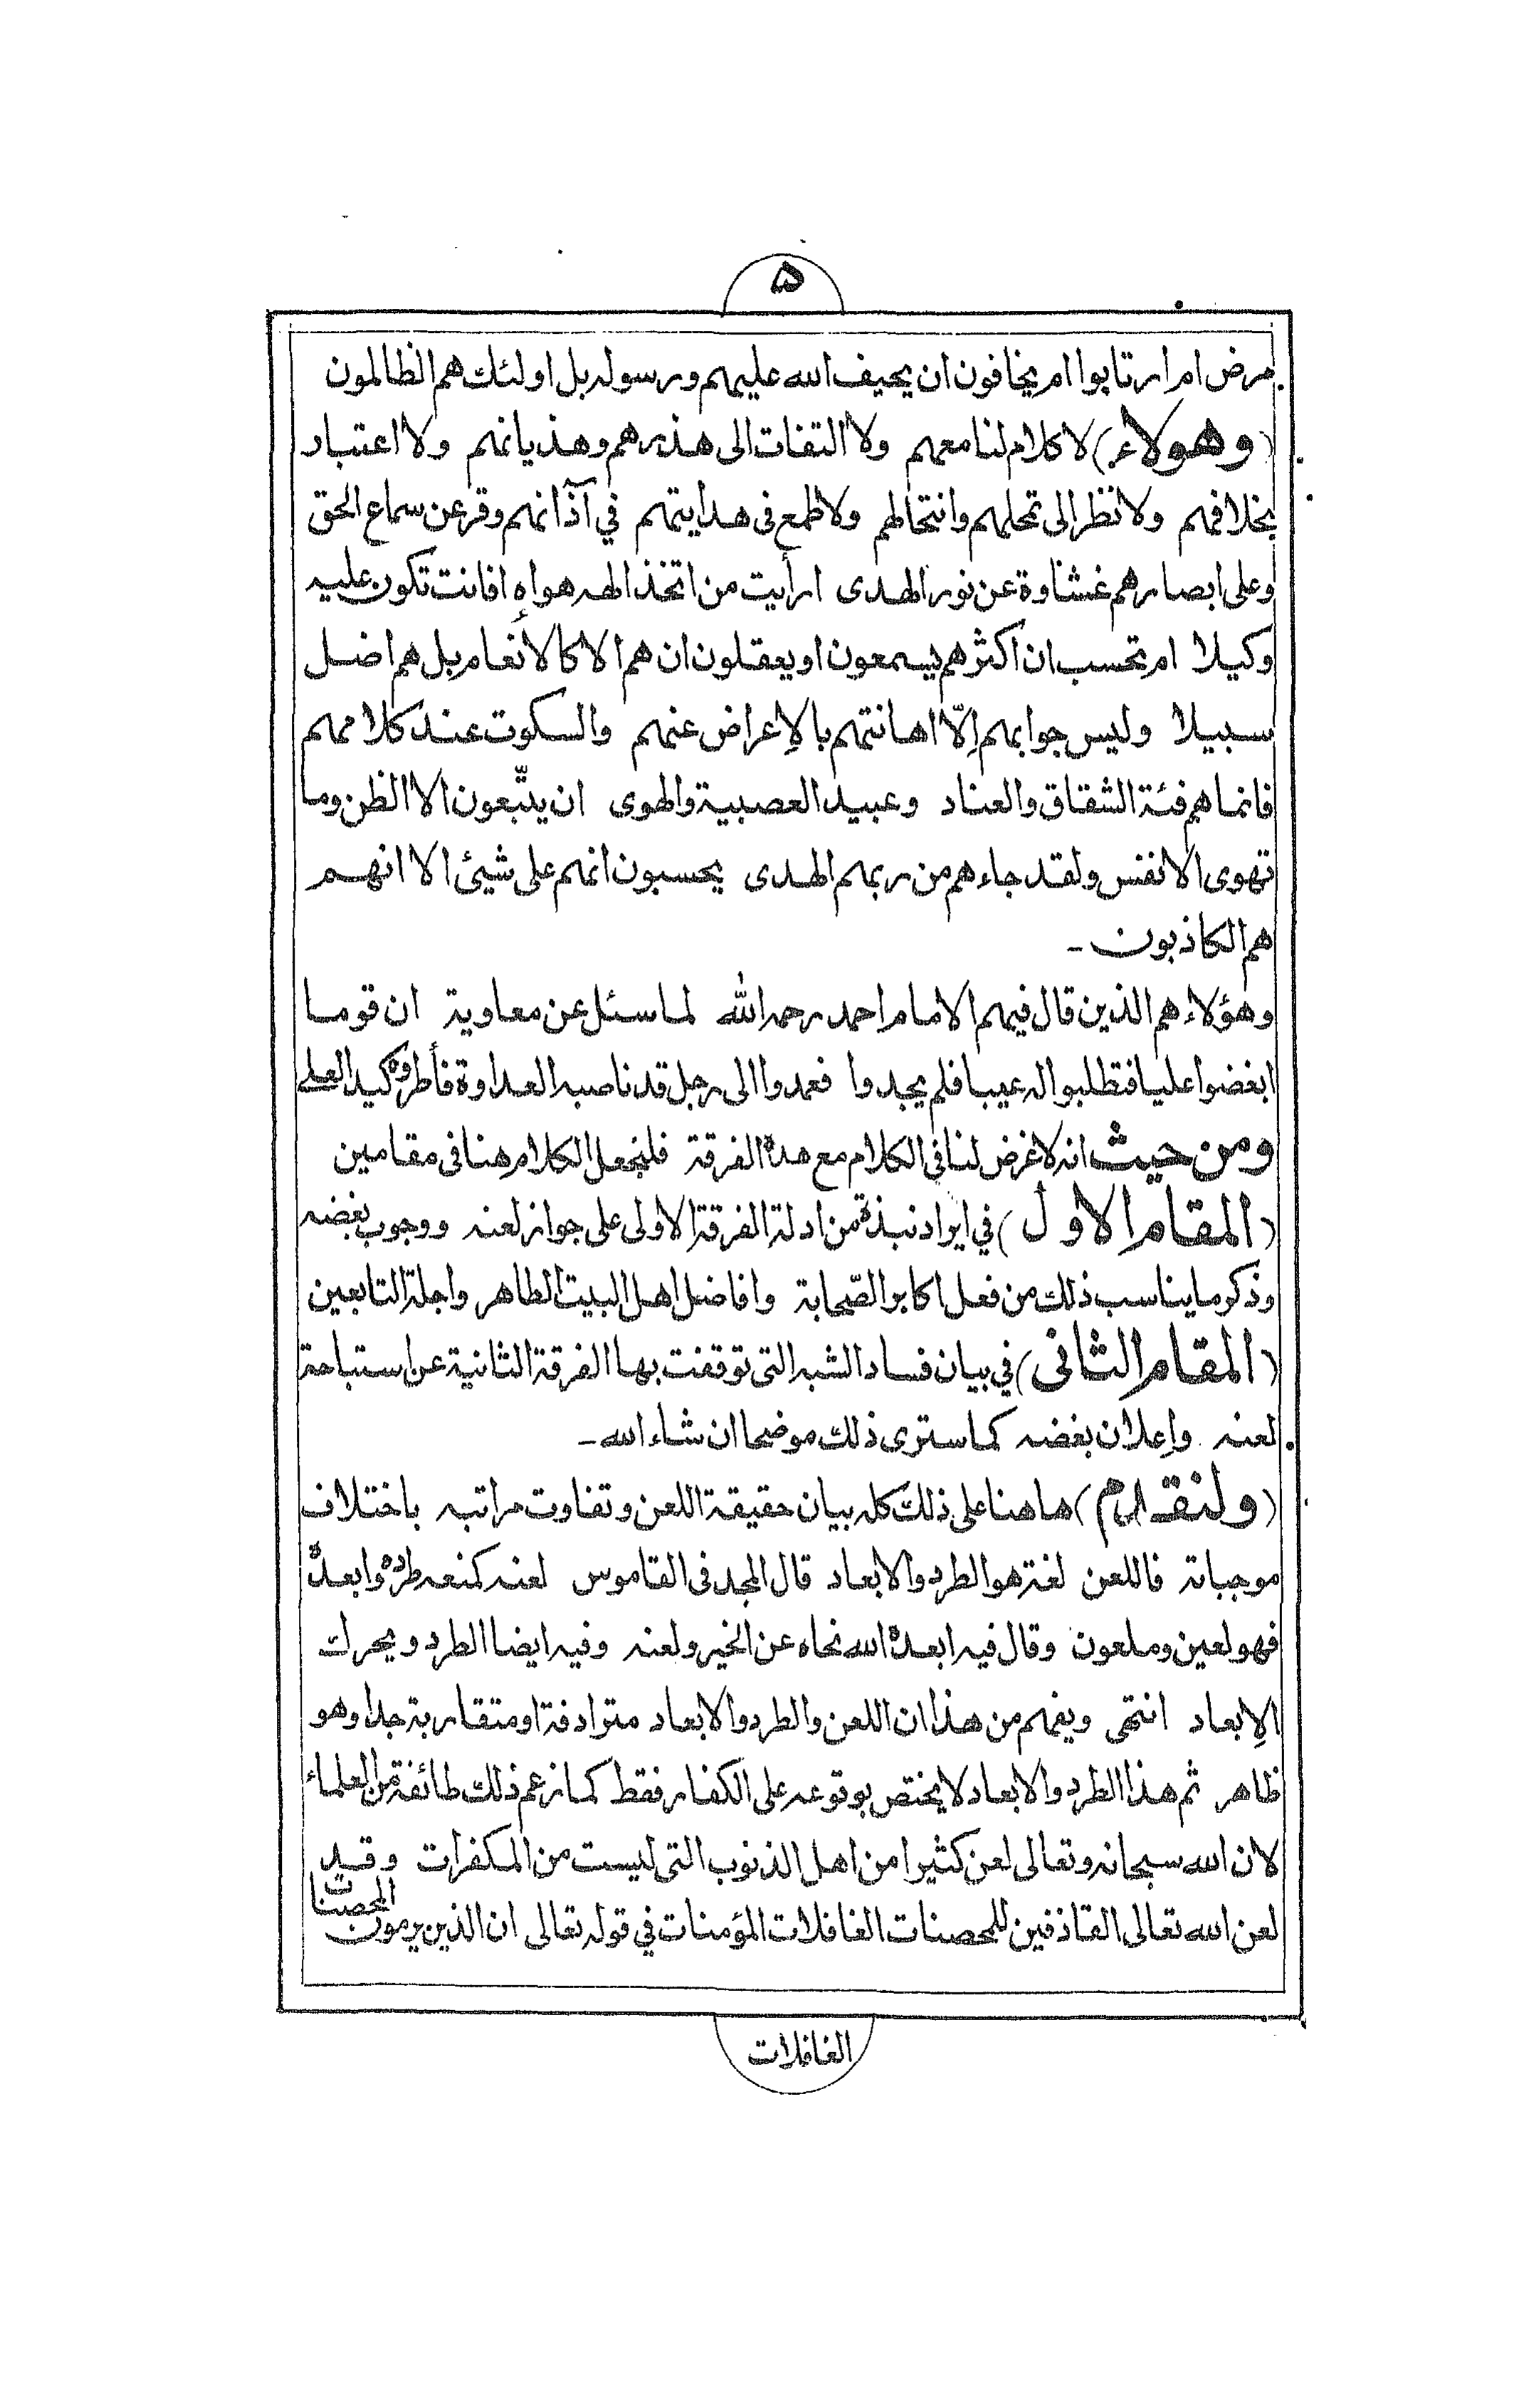 ۵
مرض ام ارتابوا ام يخافون ان يحيف الله عليهم ورسوله بل اولئك هم الظالمون
(وهولاء) لا كلام لنا معهم ولا التفات الى هذرهم وهذيانهم ولا اعتبار
بخلافهم ولا نظر الى تمحلهم وانتحالهم ولا طمع فى هدايتهم في آذانهم وقر عن سماع الحق
وعلى ابصارهم غشاوة عن نور الهدى ارأيت من اتخذ الهه هواه افانت تكون عليه
وكيلا ام تحسب ان اكثرهم يسمعون او يعقلون ان هم الا كالأنعام بل هم اضل
سبيلا وليس جوابهم إلّا اهانتهم بالإعراض عنهم والسكوت عند كلامهم
فانما هم فئة الشقاق والعناد وعبيد العصبية والهوى ان يتّبعون الا الظن وما
تهوى الانفس ولقد جاءهم من ربهم الهدى يحسبون انهم على شيئ الا انهم
هم الكاذبون -
وهؤلاء هم الذين قال فيهم الامام احمد رحمه الله لما سئل عن معاوية ان قوما
ابغضوا عليا فتطلبوا له عيبا فلم يجدوا فعمدوا الى رجل قد ناصبه العداوة فأطروه كيدا لعلى
ومن حيث انه لا غرض لنا في الكلام مع هذه الفرقة فلنجعل الكلام هنا فى مقامين
(المقام الاول) في ايراد نبذة من ادلة الفرقة الاولى على جواز لعنه ووجوب بغضه
وذكر ما يناسب ذلك من فعل اكابر الصّحابة وافاضل اهل البيت الطاهر واجلة التابعين
(المقام الثانى) في بيان فساد الشبه التى توقفت بها الفرقة الثانية عن استباحة
لعنه واعلان بغضه كما سترى ذلك موضحا ان شاء الله -
(ولنقدم) هاهنا على ذلك كله بيان حقيقة اللعن وتفاوت مراتبه باختلاف
موجباته فاللعن لغة هو الطرد والابعاد قال المجد فى القاموس لعنه كمنعه طرده وابعده
فهو لعين وملعون وقال فيه ابعده الله نحاه عن الخير ولعنه وفيه ايضا الطرد ويحرك
الإبعاد انتهى ويفهم من هذا ان اللعن والطرد والابعاد مترادفة او متقاربة جدا وهو
ظاهر ثم هذا الطرد والابعاد لا يختص بوقوعه على الكفار فقط كما زعم ذلك طائفة من العلماء
لان الله سبحانه وتعالى لعن كثيرا من اهل الذنوب التى ليست من المكفرات وقد
لعن الله تعالى القاذفين للمحصنات الغافلات المؤمنات في قوله تعالى ان الذين يرمون المحصنات
الغافلات